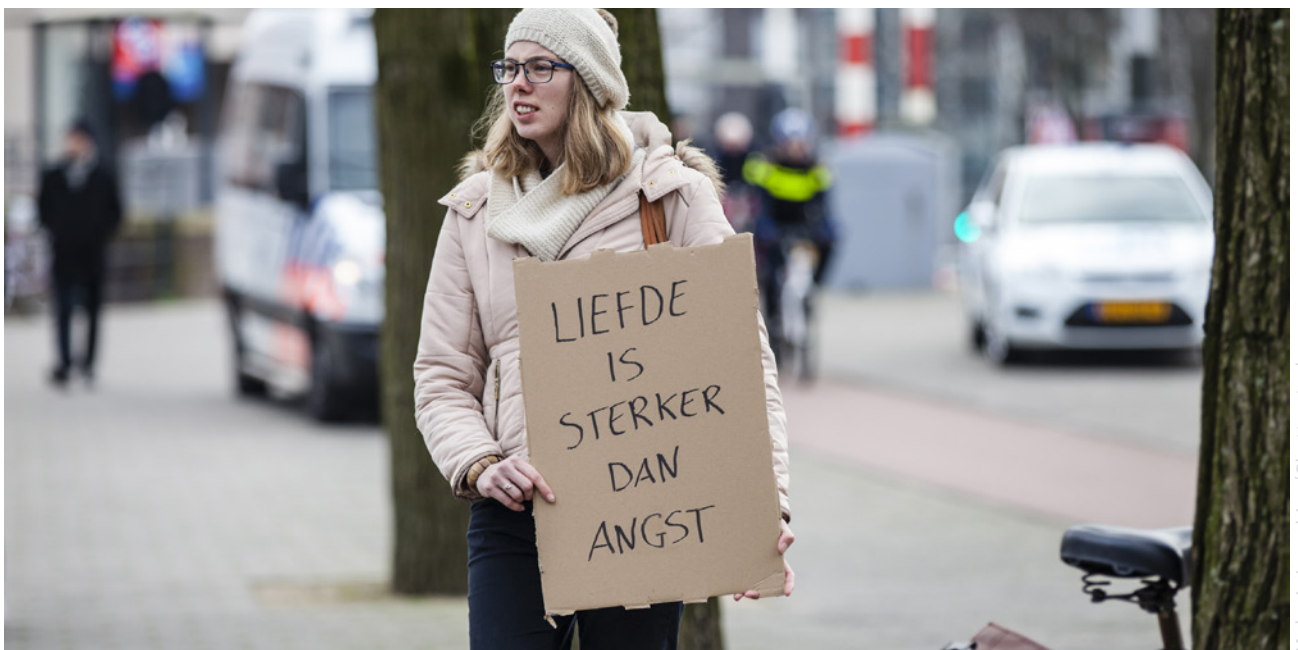 LIEFDE
IS
STERKER
DAN
ANGST